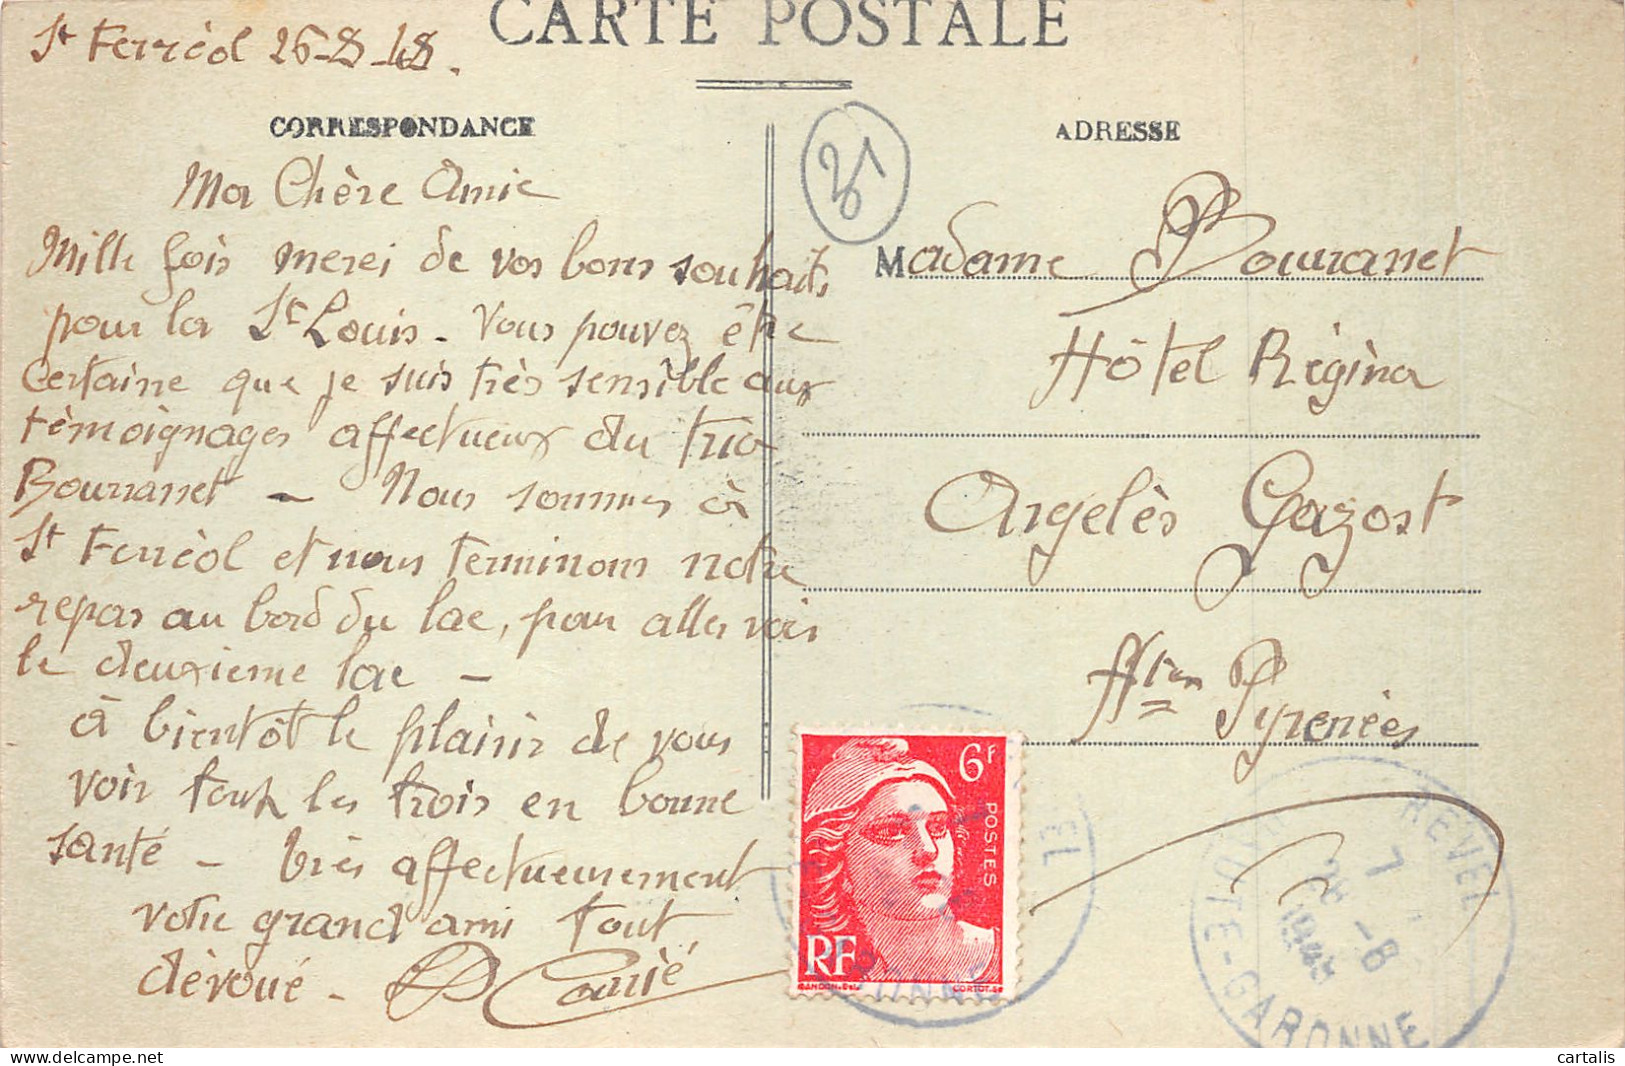 CARTE POSTALE
St Ferréol 26-8-48.
CORRESPONDANCE
Ma Chère Amie
Mille fois merci de vos bons souhaits
pour la St Louis. Vous pouvez être
certaine que je suis très sensible aux
témoignages affectueux du trio
Bourranet - Nous sommes à
St Ferréol et nous terminons notre
repas au bord du lac, pour aller voir
le deuxième lac -
à bientôt le plaisir de vous
voir tous les trois en bonne
santé - très affectueusement
votre grand ami tout
dévoué -
ADRESSE
Madame Bourranet
Hôtel Régina
Argelès Gazost
Htes Pyrénées
25
6F
POSTES
RF
GANDON.Del.
CORTOT.Sc
REVEL
28 -8
1948
HAUTE-GARONNE
cartalis